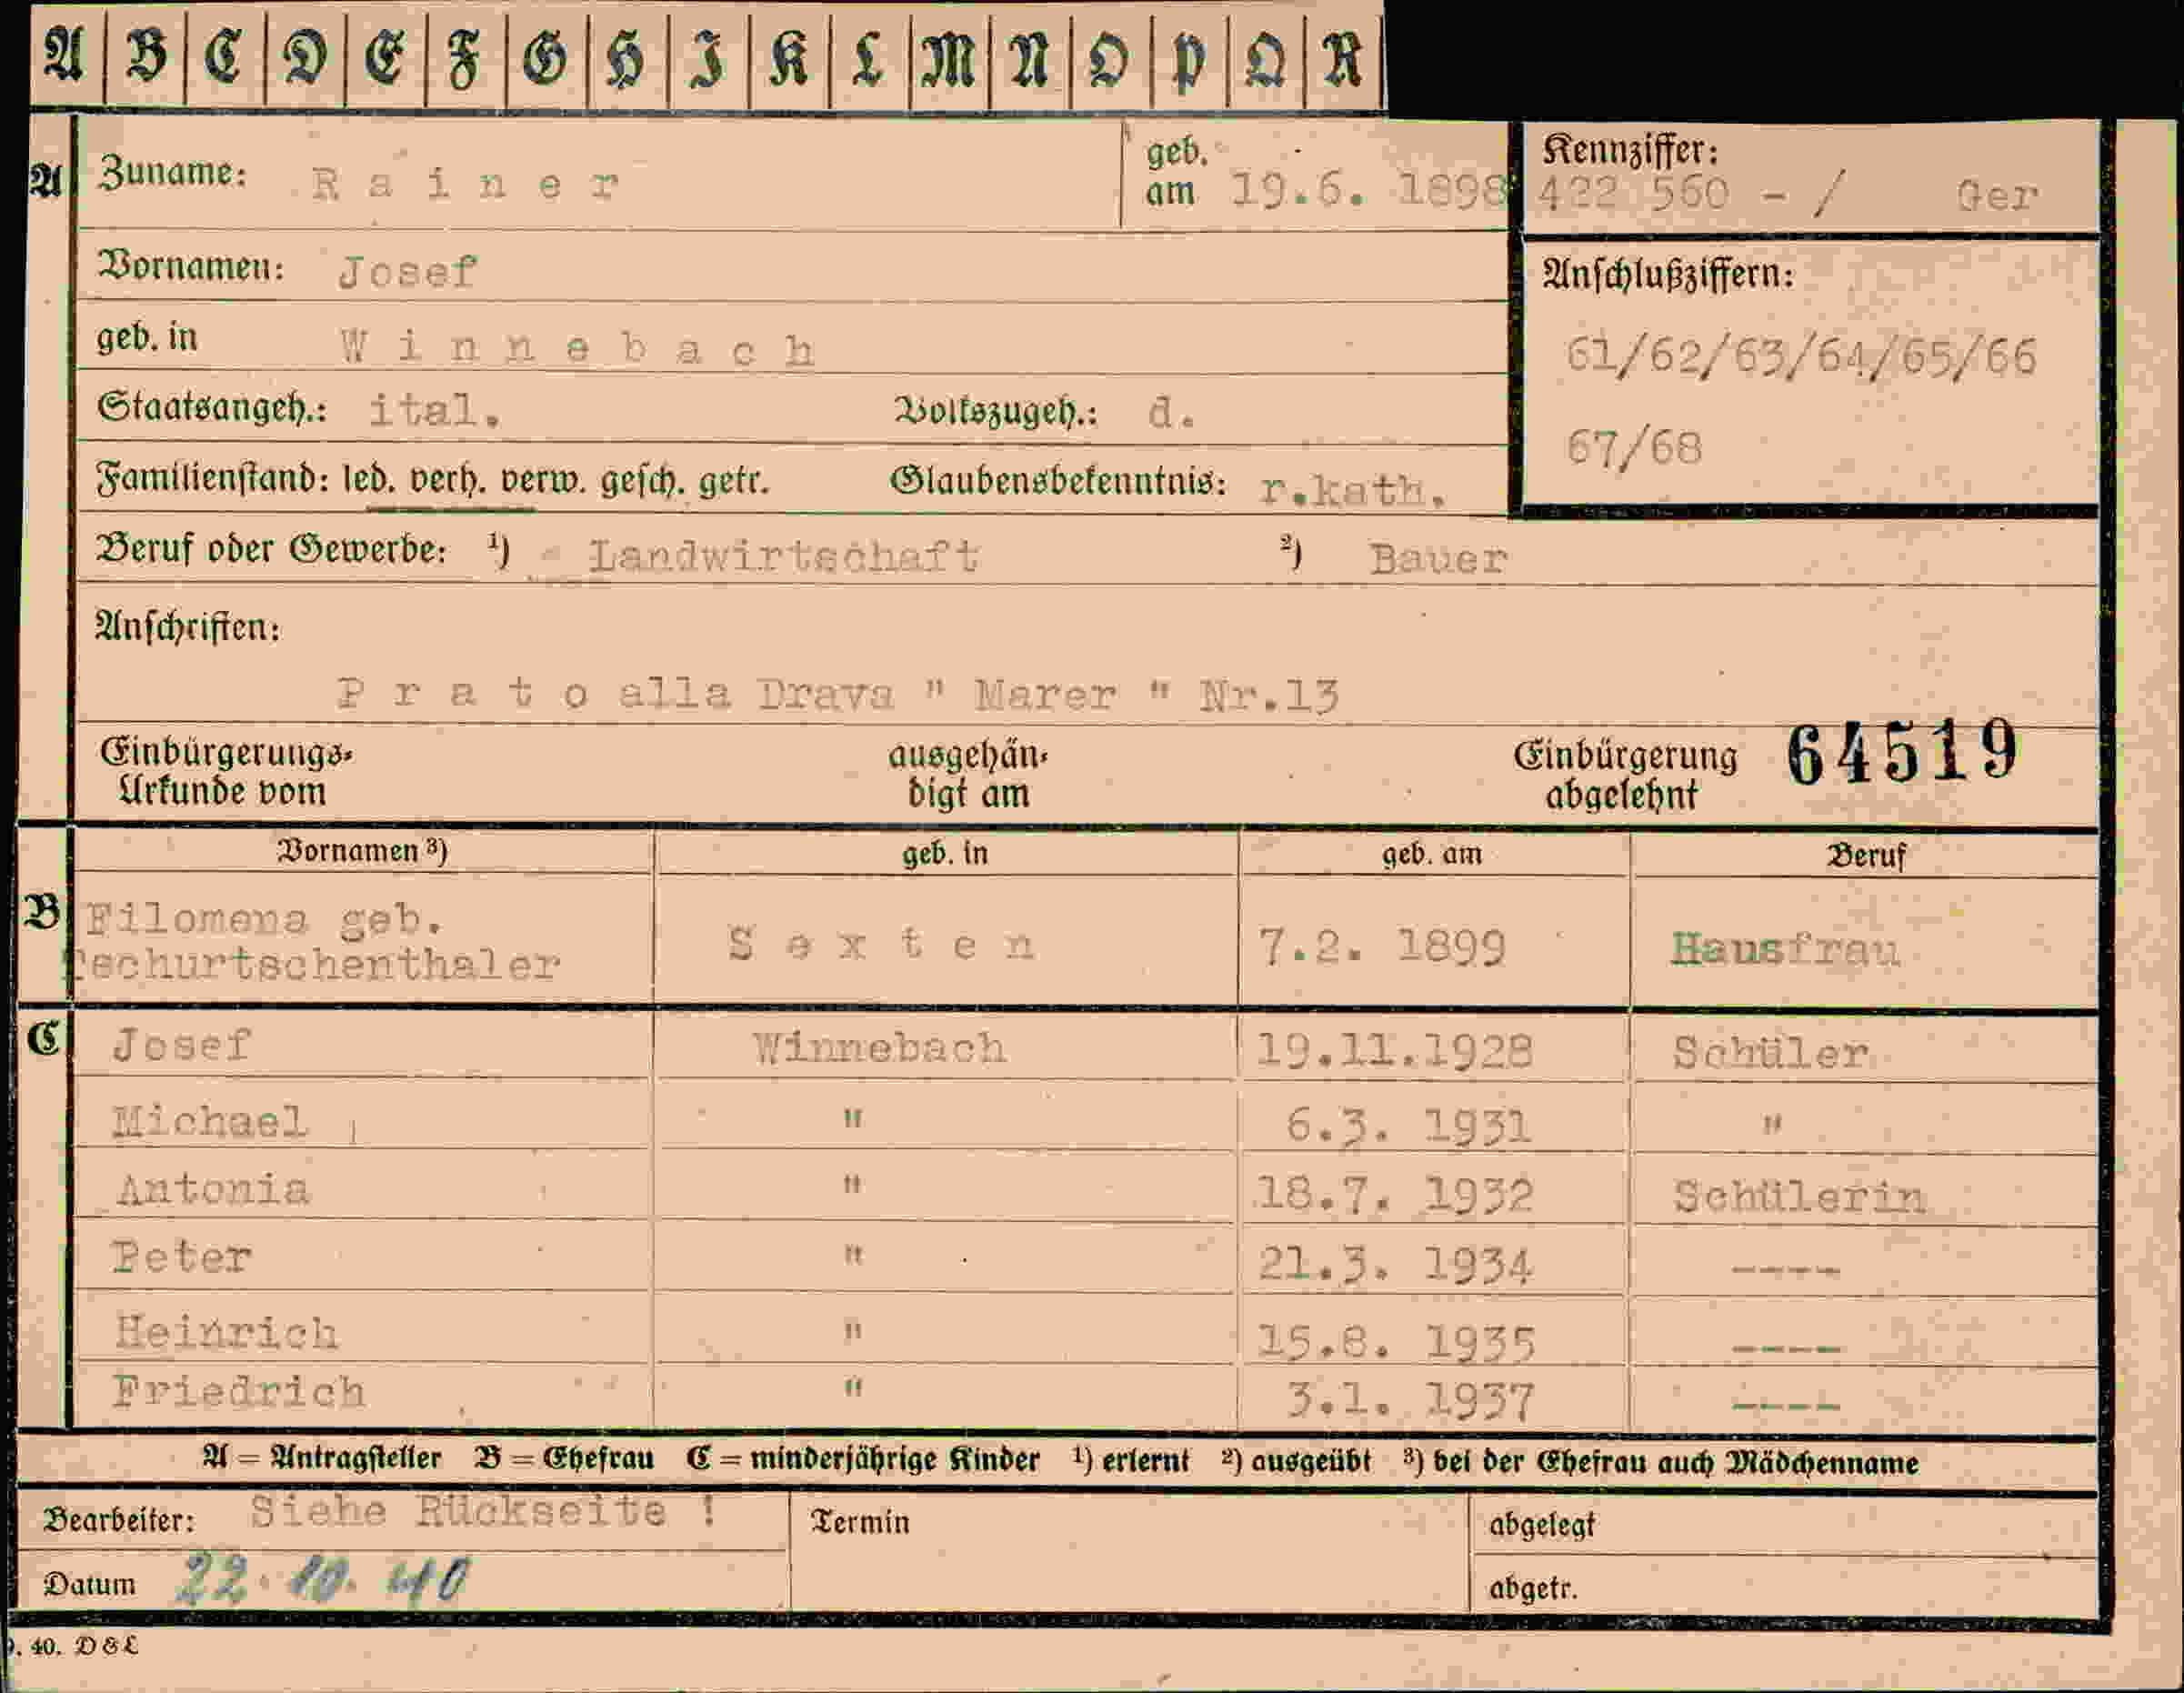 A B C D E F G H I K L M N O P Q R
A Zuname: Rainer geb. am 19.6. 1898 Kennziffer: 422 560 - / Ger
Vornamen: Josef Anschlußziffern:
geb. in Winnebach 61/62/63/64/65/66
Staatsangeh.: ital. Volkszugeh.: d. 67/68
Familienstand: led. verh. verw. gesch. getr. Glaubensbekenntnis: r.kath.
Beruf oder Gewerbe: ¹) Landwirtschaft ²) Bauer
Anschriften:
Prato alla Drava " Marer " Nr.13
Einbürgerungs- ausgehän- Einbürgerung 64519
Urkunde vom digt am abgelehnt
Vornamen ³) geb. in geb. am Beruf
B Filomena geb. Sexten 7.2. 1899 Hausfrau
Tschurtschenthaler
C Josef Winnebach 19.11.1928 Schüler
Michael " 6.3. 1931 "
Antonia " 18.7. 1932 Schülerin
Peter " 21.3. 1934 ----
Heinrich " 15.8. 1935 ----
Friedrich " 3.1. 1937 ----
A = Antragsteller B = Ehefrau C = minderjährige Kinder ¹) erlernt ²) ausgeübt ³) bei der Ehefrau auch Mädchenname
Bearbeiter: Siehe Rückseite ! Termin abgelegt
Datum 22. 10. 40 abgetr.
. 40. D & L